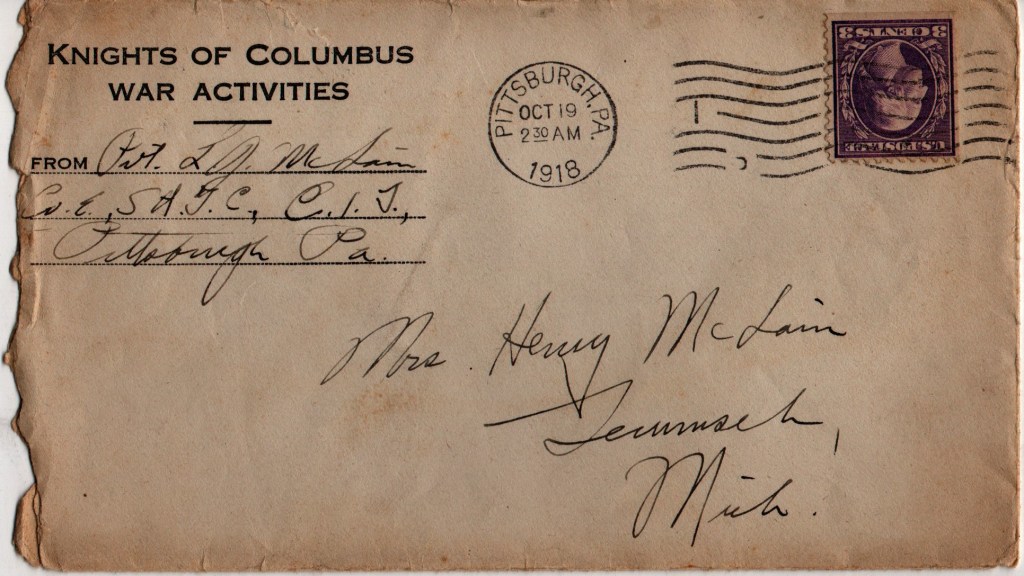 KNIGHTS OF COLUMBUS
WAR ACTIVITIES
FROM Pvt. L. J. McLain
Co. E., S.A.T.C., C.I.T.,
Pittsburgh Pa.
PITTSBURGH, PA.
OCT 19
2 30 AM
1918
3 CENTS 3
U.S. POSTAGE
Mrs. Henry McLain
Tecumseh,
Mich.